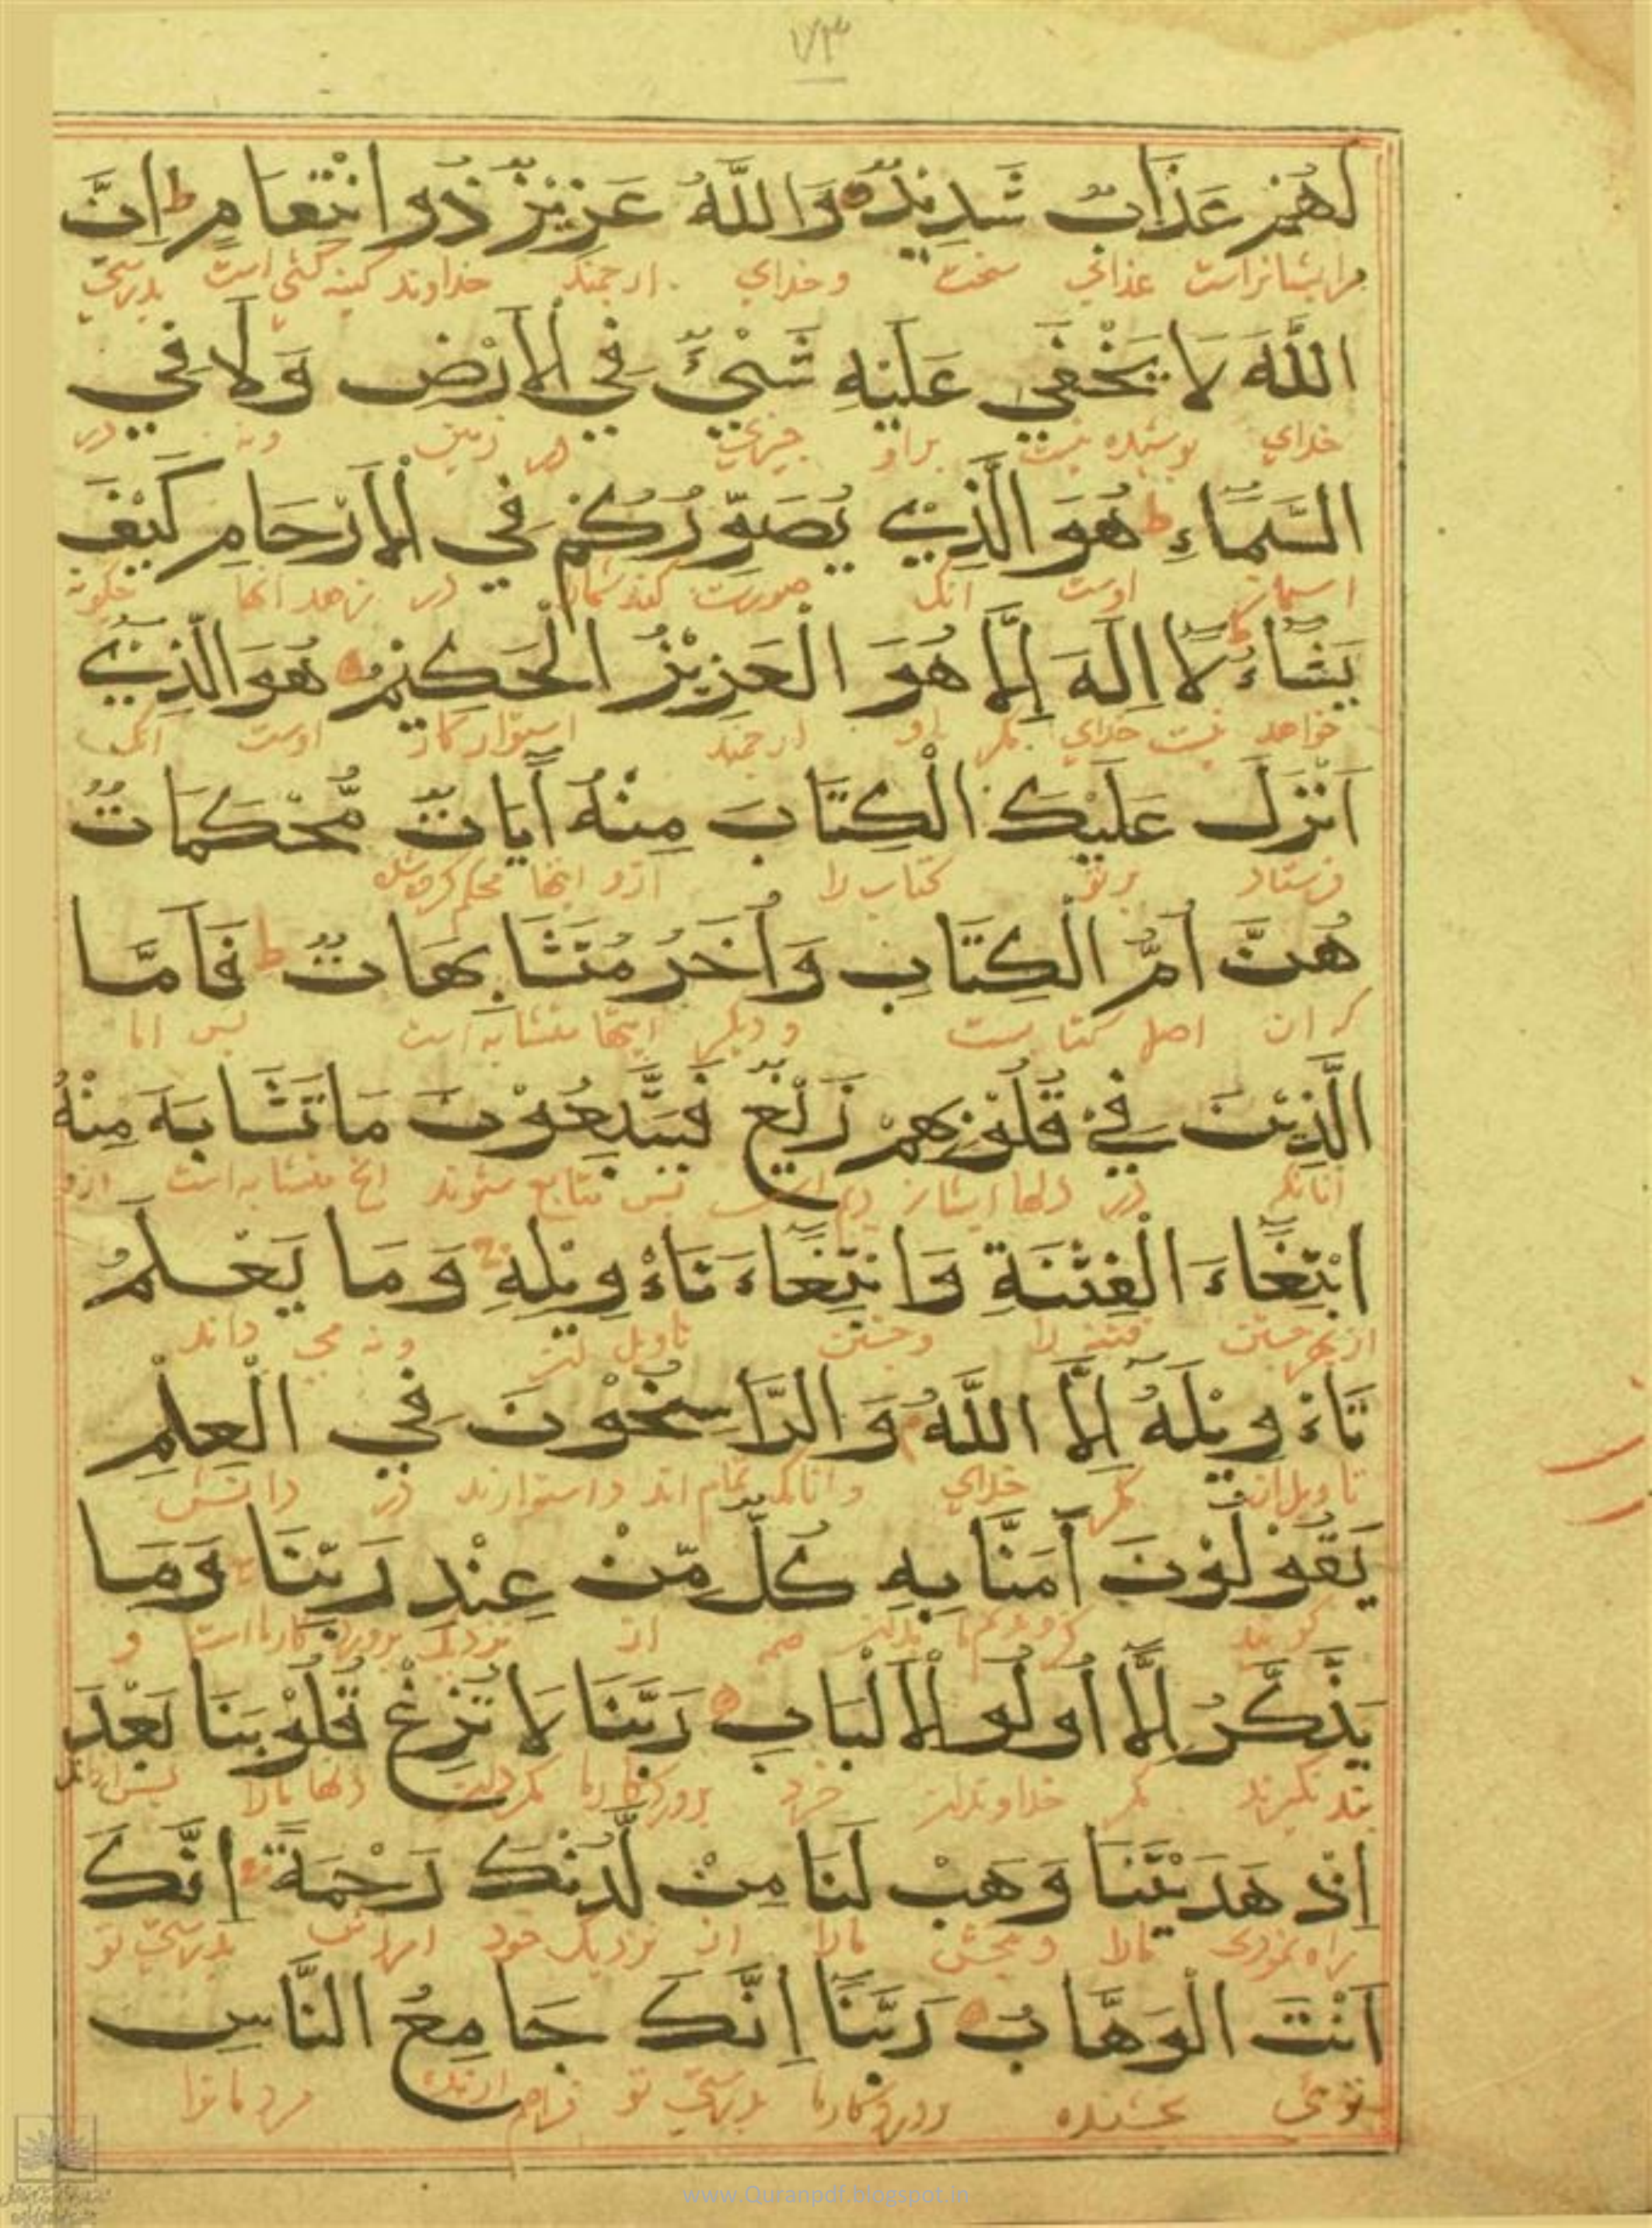 ١٧٣
لَهُمْ عَذَابٌ شَدِيدٌ وَاللَّهُ عَزِيزٌ ذُو انْتِقَامٍ ط اِنَّ
مرایشانراست عذابی سخت وخدای ارجمند خداوند کینه کشی است بدرستی
اللَّهَ لَا يَخْفَى عَلَيْهِ شَيْءٌ فِي الْاَرْضِ وَلَا فِي
خدای پوشیده نیست براو چیزی در زمین ونه در
السَّمَاءِ ط هُوَ الَّذِي يُصَوِّرُكُمْ فِي الْاَرْحَامِ كَيْفَ
اسمان اوست انک صورت کند شمارا در چکونه
يَشَاءُ ط لَا اِلٰهَ اِلَّا هُوَ الْعَزِيْزُ الْحَكِيْمُ هُوَ الَّذِي
خواهد نیست خدای مکر او ارجمند استوار کار اوست انک
اَنْزَلَ عَلَيْكَ الْكِتَابَ مِنْهُ اٰيَاتٌ مُّحْكَمَاتٌ
فرستاد برتو کتاب را ازو ایتها محکم کرده شده
هُنَّ اُمُّ الْكِتَابِ وَاُخَرُ مُتَشَابِهَاتٌ ط فَاَمَّا
که ان اصل کتابست و دیکر ایتها متشابه است پس اما
الَّذِيْنَ فِيْ قُلُوْبِهِمْ زَيْغٌ فَيَتَّبِعُوْنَ مَا تَشَابَهَ مِنْهُ
انانکه در دلها ایشان پس متابع میشوند انچ متشابه است ازو
ابْتِغَاءَ الْفِتْنَةِ وَابْتِغَاءَ تَاْوِيْلِهِ وَمَا يَعْلَمُ
ازبهر جستن فتنه را وجستن تاویل ونه می داند
تَاْوِيْلَهُ اِلَّا اللَّهُ وَالرَّاسِخُوْنَ فِي الْعِلْمِ
تاویل ان مکر خدای وانانکه تمام اند واستوارند در دانش
يَقُوْلُوْنَ اٰمَنَّا بِهِ كُلٌّ مِّنْ عِنْدِ رَبِّنَا وَمَا
کویند از نزدیک پروردکار ما است و
يَذَّكَّرُ اِلَّا اُولُو الْاَلْبَابِ رَبَّنَا لَا تُزِغْ قُلُوْبَنَا بَعْدَ
پند نکیرند مکر خداوندان خرد پروردکار ما دلها مارا پس
اِذْ هَدَيْتَنَا وَهَبْ لَنَا مِنْ لَّدُنْكَ رَحْمَةً اِنَّكَ
راه نمودی مارا وببخش مارا از نزدیک خود بدرستی تو
اَنْتَ الْوَهَّابُ رَبَّنَا اِنَّكَ جَامِعُ النَّاسِ
توئی بخشنده پروردکار ما بدرستی تو فراهم مردمانرا
www.Quranpdf.blogspot.in